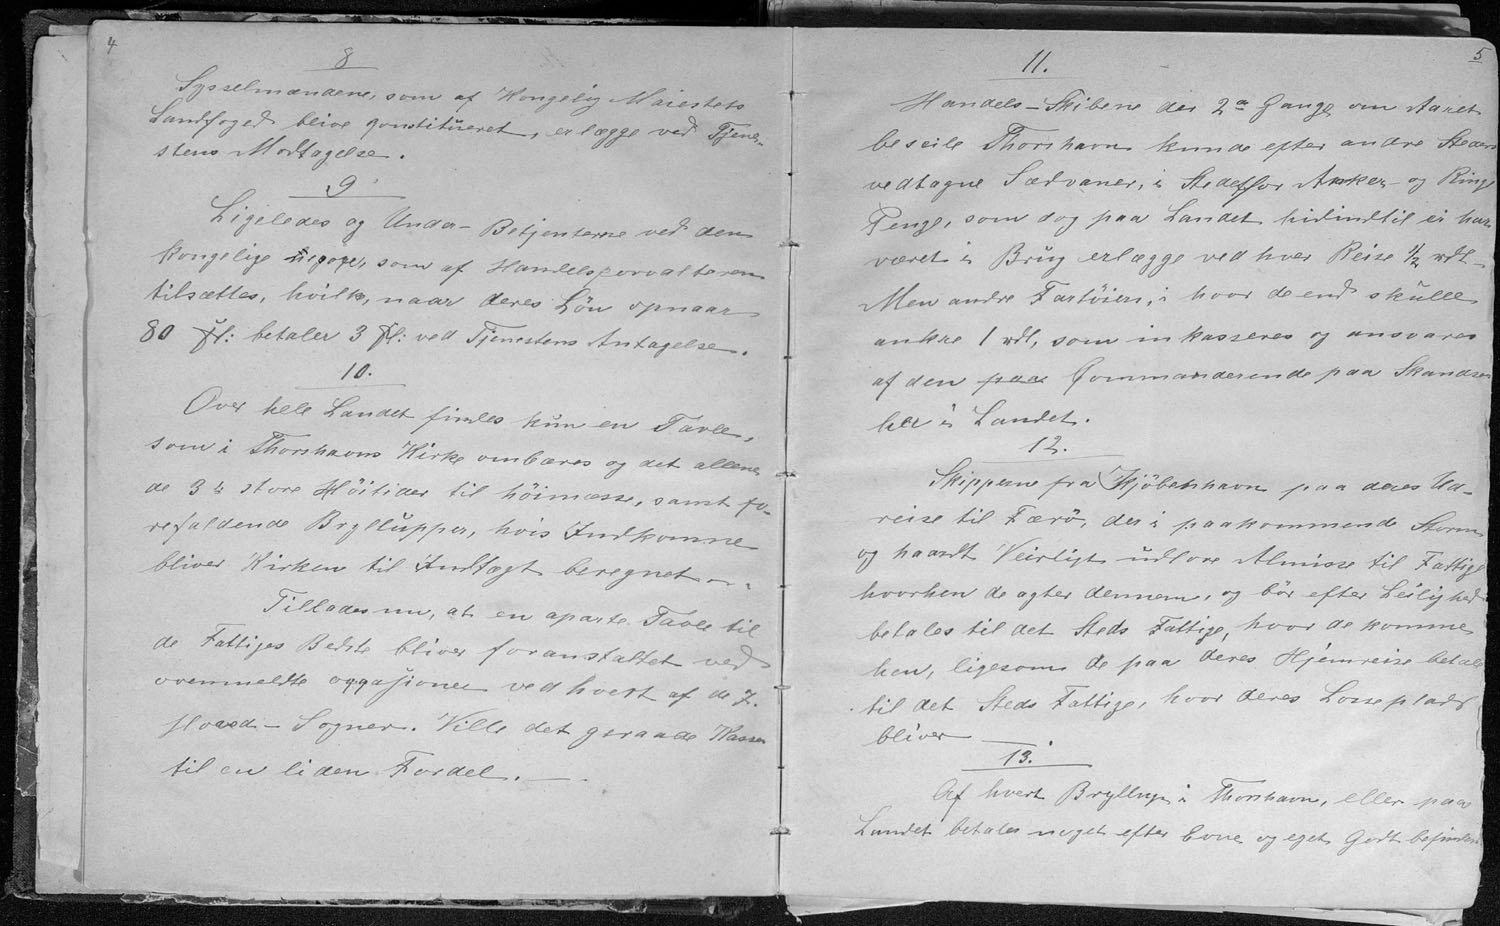 4
8
Sysselmændene, som af Kongelig Maiestets
Landfoged blive constitueret, erlægge ved Tjene-
stens Modtagelse.
9
Ligeledes og Under-Betjenterne ved den
kongelige som af Handelsforvalteren
tilsættes, hvilke, naar deres Lön opnaar
80 fl: betaler 3 fl: ved Tjenestens Antagelse.
10.
Over hele Landet findes kun en Tavle,
som i Thorshavns Kirke ombæres og det allene
de 3de store Höitider til höimæsse, samt fo-
refaldende Bryllupper, hvis Indkomne
bliver Kirken til Indtægt beregnet
Tillades nu, at en aparte Tavle til
de Fattiges Bedste bliver foranstaltet ved
ovenmeldte occasjoner ved hvert af de 7.
Hoved-Sogner. Ville det geraade Kassen
til en liden Fordel.
5
11.
Handels-Skibene der 2de Gange om Aaret
beseile Thorshavn kunde efter andre Steders
vedtagne Sædvaner, i Stedet for Anker- og Ring
Penge, som dog paa Landet hidindtil ei har
været i Brug erlægge ved hver Reise 1/2 rdl.
Men andre Fartöier, i hvor de end skulle
ankre 1 rdl, som inkasseres og ansvares
af den paa Commanderende paa Skandsen
her i Landet.
12.
Skipperne fra Kjöbenhavn paa deres Ud-
reise til Færö, der i paakommende Storm
og haardt Veirligt udlove Almisse til Fattige
hvorhen de agter dennem, og bör efter Leilighed
betales til det Steds Fattige, hvor de komme
hen, ligesom de paa deres Hjemreise betale
til det Steds Fattige, hvor deres Losseplads
bliver
13.
Af hvert Bryllup i Thorshavn, eller paa
Landet betales noget efter Evne og eget Godt befindende